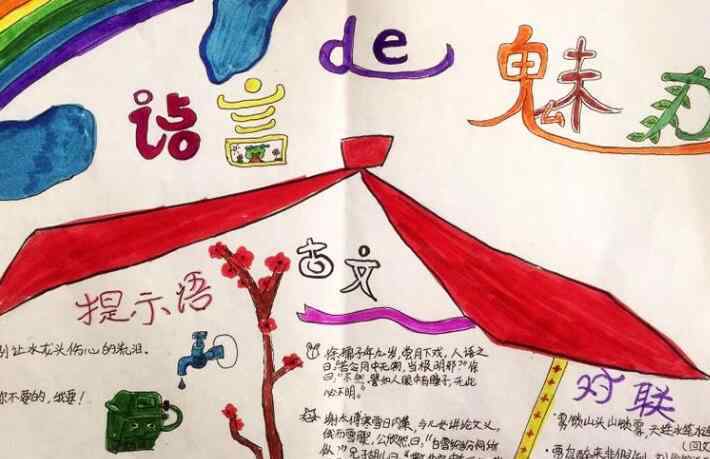 语言de魅力
提示语
别让水龙头伤心的流泪。
你不要的,我要!
古文
徐孺子年九岁,尝月下戏,人语之
曰:"若令月中无物,当极明邪?"徐
曰:"不然,譬如人眼中有瞳子,无此
必不明。"
谢太傅寒雪日内集,与儿女讲论文义,
俄而雪骤,公欣然曰:"白雪纷纷何所
似?"兄子胡儿曰:
对联
雪映山头山映雪,天连水尾水连
(回文